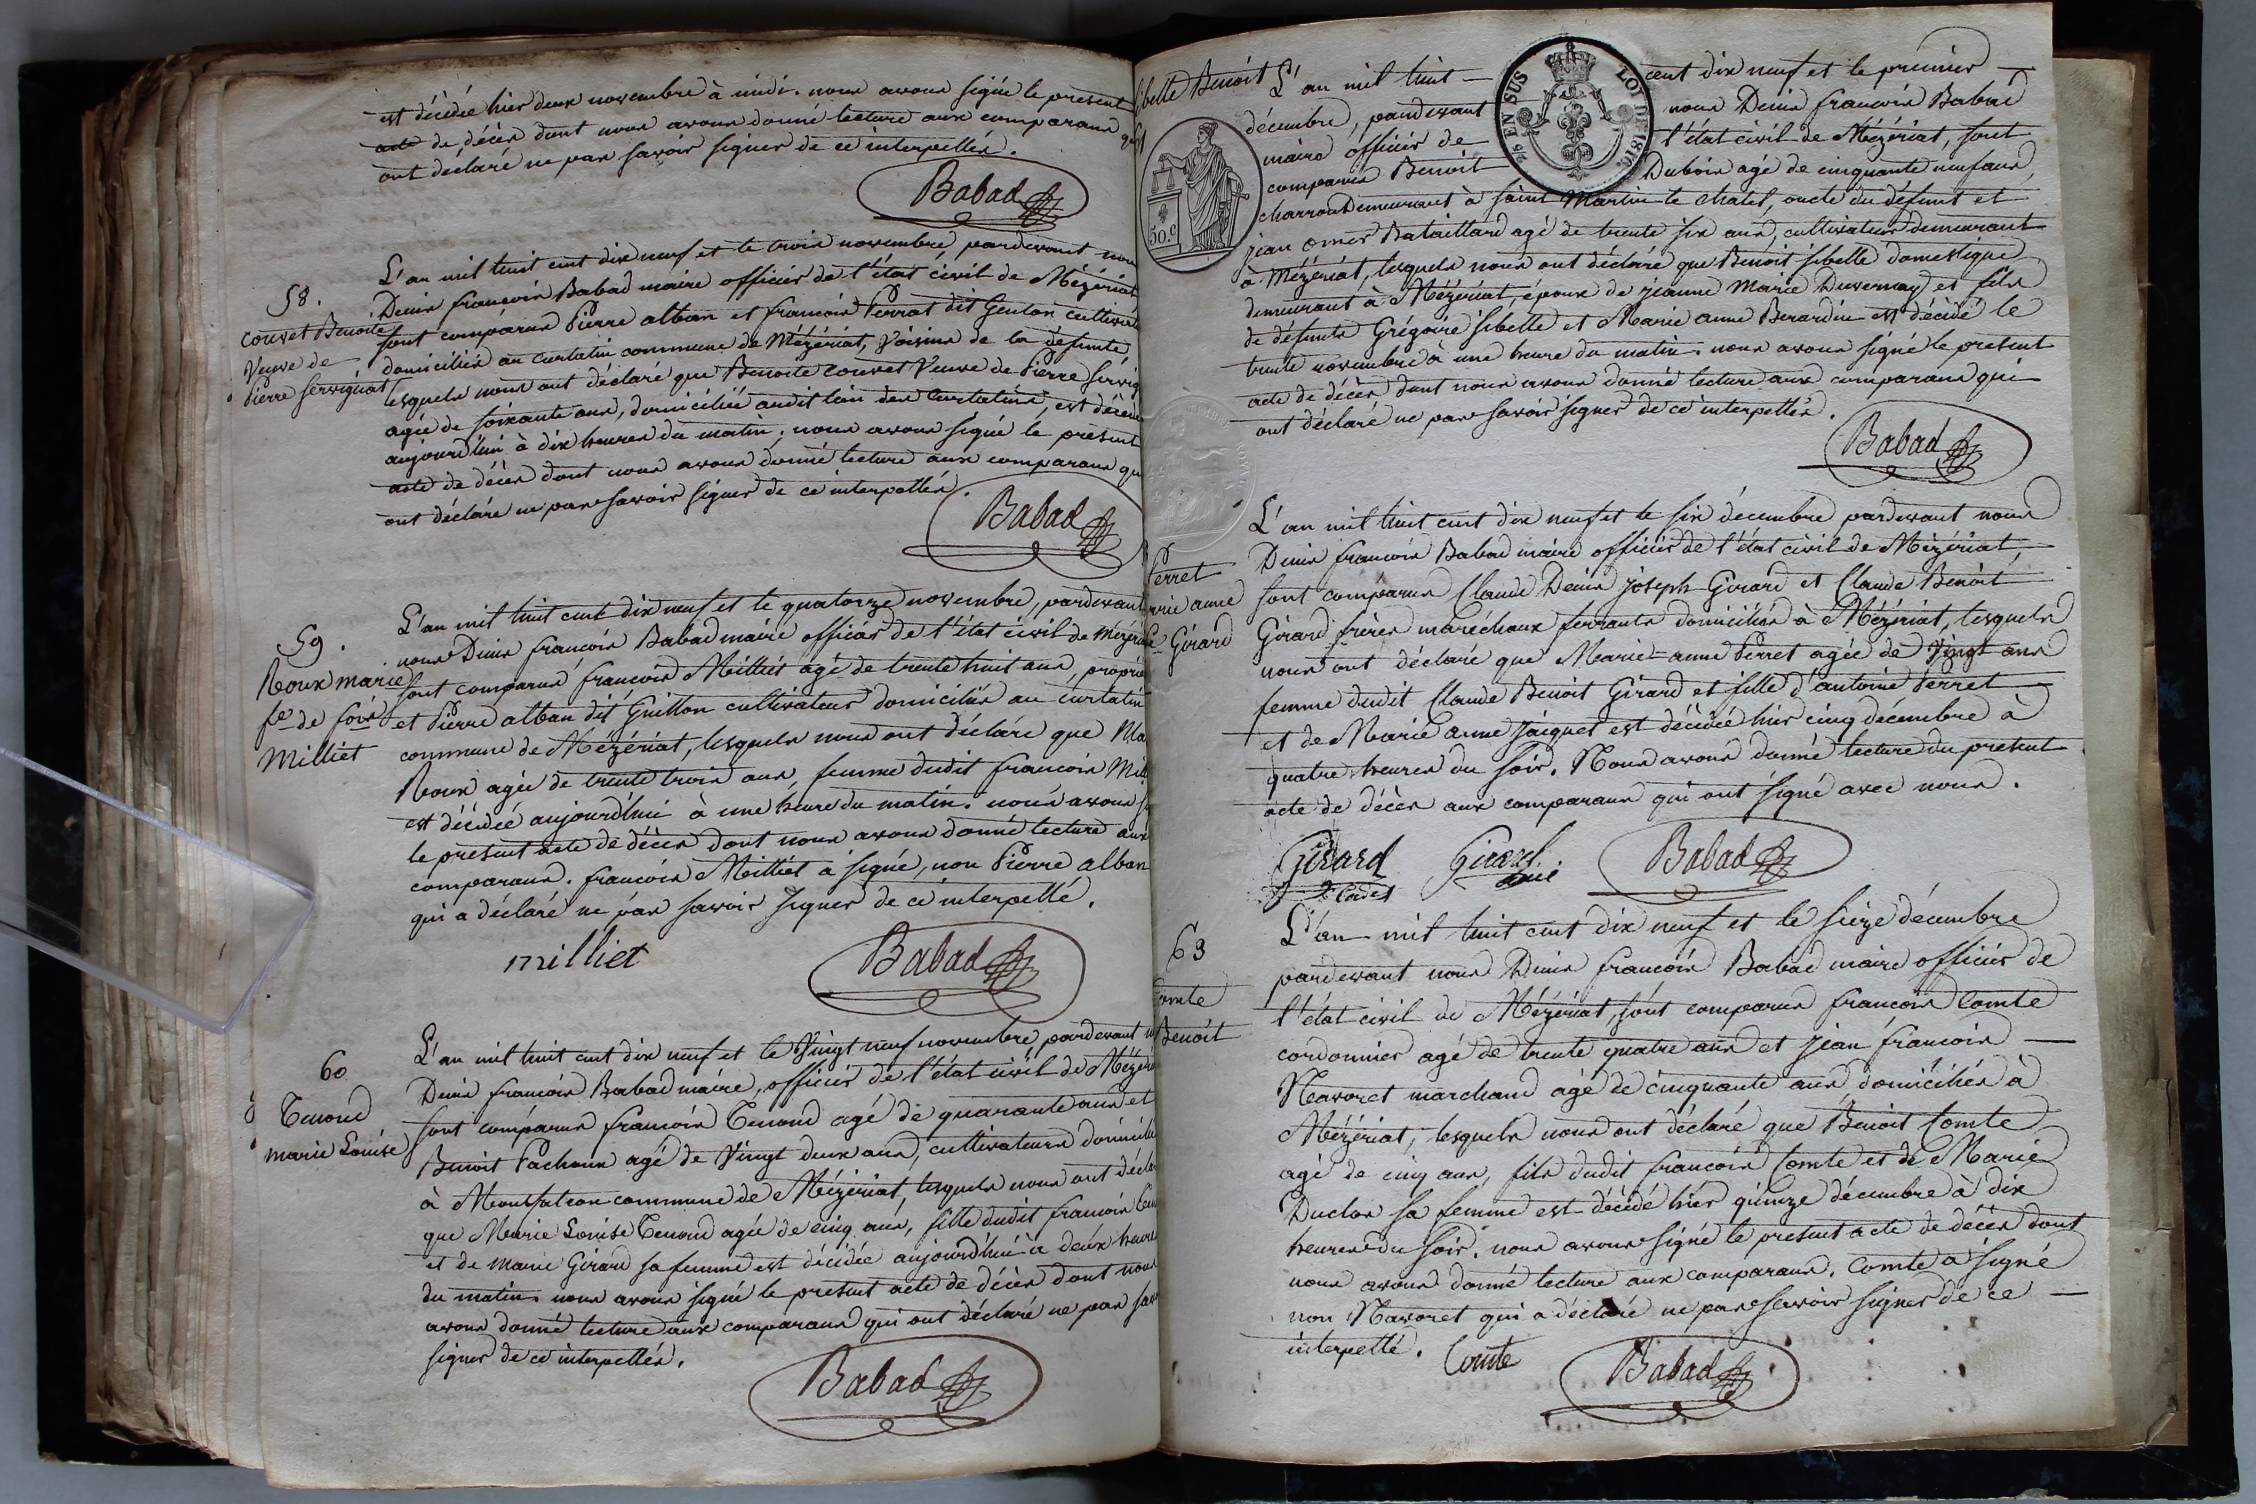 est décédée hier deux novembre à midi. nous avons signé le present
acte de décès dont nous avons donné lecture aux comparans qui
ont déclaré ne pas savoir signer de ce interpellés.
Babad
58.
Couvet Benoite
Veuve de
Pierre Servignat
L'an mil huit cent dix neuf et le trois novembre, pardevant nous
Denis françois Babad maire officier de l'état civil de Mézériat
sont comparus Pierre alban et françois Perrat dit Genton cultivate
domiciliés au curtatin commune de Mézériat, Voisins de la défunte,
lesquels nous ont déclaré que Benoite Couvet Veuve de Pierre Servig
agée de soixante ans, domiciliée audit lieu des Curtatins, est décédée
aujourd'hui à dix heures du matin; nous avons signé le présent
acte de décès dont nous avons donné lecture aux comparans qui
ont déclaré ne pas savoir signer de ce interpellés.
Babad
59.
Roux marie
fe. de fois
Milliet
L'an mil huit cent dix neuf et le quatorze novembre, pardevant
nous Denis françois Babad maire officier de l'état civil de Mézériat
sont comparus françois Milliet agé de trente huit ans, proprié
et Pierre alban dit Guillon cultivateur domiciliés au curtatin
commune de Mézériat, lesquels nous ont déclaré que Ma
Roux agée de trente trois ans, femme dudit françois Mill
est décédée aujourd'hui à une heure du matin. nous avons si
le present acte de décès dont nous avons donné lecture aux
comparans. françois Milliet a signé, non Pierre alban
qui a déclaré ne pas savoir signer de ce interpellé.
milliet
Babad
60
Tenoud
marie Louise
L'an mil huit cent dix neuf et le Vingt neuf novembre, pardevant n
Denis françois Babad maire, officier de l'état civil de Mézéria
sont comparus françois Tenoud agé de quarante ans et
Benoit Pachoux agé de Vingt deux ans, cultivateurs domicilié
à Montfalcon commune de Mézériat, lesquels nous ont décla
que Marie Louise Tenoud agée de cinq ans, fille dudit françois Ten
et de Marie Girard sa femme est décédée aujourd'hui à deux heures
du matin. nous avons signé le present acte de décès dont nous
avons donné lecture aux comparans qui ont déclaré ne pas sav
signer de ce interpellés.
Babad
Sibelle Benoit
EN SUS
LOI DE 1816
50.c
L'an mil huit cent dix neuf et le premier
décembre, pardevant nous Denis françois Babad
maire officier de l'état civil de Mézériat, sont
comparus Benoit Dubois agé de cinquante neuf ans,
charron demeurant à Saint Martin le chatel, oncle du défunt et
jean omer Bataillard agé de trente six ans, cultivateur demeurant
à Mézériat, lesquels nous ont déclaré que Benoit Sibelle domestique
demeurant à Mézériat, époux de jeanne Marie Duvernay et fils
de défunts Grégoire Sibelle et Marie anne Berardin est décédé le
trente novembre à une heure du matin. nous avons signé le present
acte de décès dont nous avons donné lecture aux comparans qui
ont déclaré ne pas savoir signer de ce interpellés.
Babad
Perret
marie anne
fe Girard
L'an mil huit cent dix neuf et le six décembre pardevant nous
Denis françois Babad maire officier de l'état civil de Mézériat,
sont comparus Claude Denis joseph Girard et Claude Benoit
Girard frères maréchaux ferrants domiciliés à Mézériat, lesquels
nous ont déclaré que Marie-anne Perret agée de Vingt ans
femme dudit Claude Benoit Girard et fille d'antoine Perret
et de Marie anne Jaiquet est décédée hier cinq décembre à
quatre heures du soir. Nous avons donné lecture du present
acte de décès aux comparans qui ont signé avec nous.
Girard
Cadet
Girard
Babad
63
Comte
Benoit
L'an mil huit cent dix neuf et le seize décembre
pardevant nous Denis françois Babad maire officier de
l'état civil de Mézériat, sont comparus françois Comte
cordonnier agé de trente quatre ans et jean françois
Navoret marchand agé de cinquante ans domiciliés à
Mézériat, lesquels nous ont déclaré que Benoit Comte
agé de cinq ans, fils dudit françois Comte et de Marie
Duclos sa femme est décédé hier quinze décembre à dix
heures du soir. nous avons signé le present acte de décès dont
nous avons donné lecture aux comparans. Comte a signé
non Navoret qui a déclaré ne pas savoir signer de ce
interpellé.
Comte
Babad